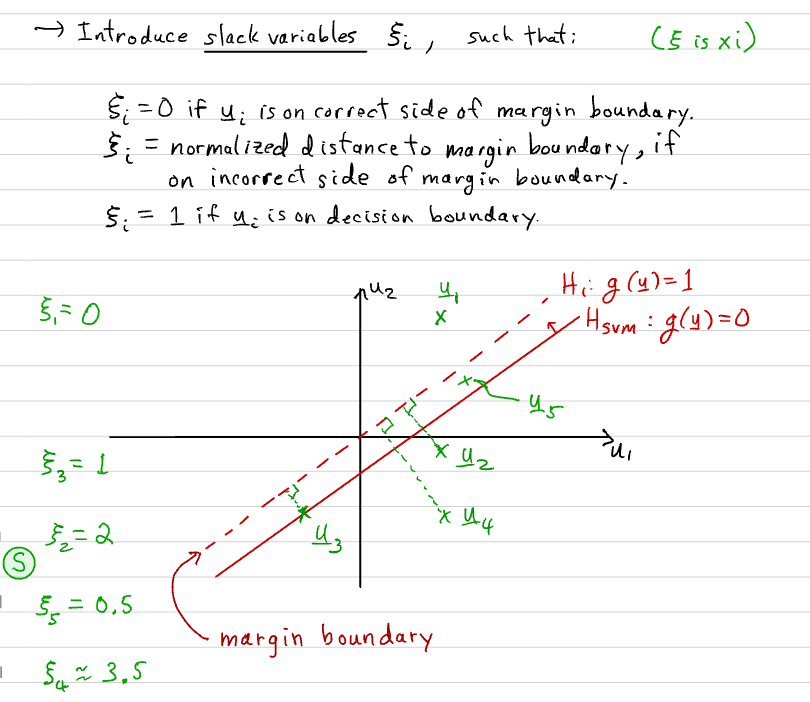 → Introduce slack variables ξᵢ, such that: (ξ is xi)
ξᵢ = 0 if u̲ᵢ is on correct side of margin boundary.
ξᵢ = normalized distance to margin boundary, if
on incorrect side of margin boundary.
ξᵢ = 1 if u̲ᵢ is on decision boundary.
u₂
u̲₁
H₁: g(u̲)=1
ξ₁ = 0
H_SVM : g(u̲)=0
u̲₅
u₁
ξ₃ = 1
u̲₂
u̲₄
ξ₂ = 2
u̲₃
S
ξ₅ = 0.5
margin boundary
ξ₄ ≈ 3.5